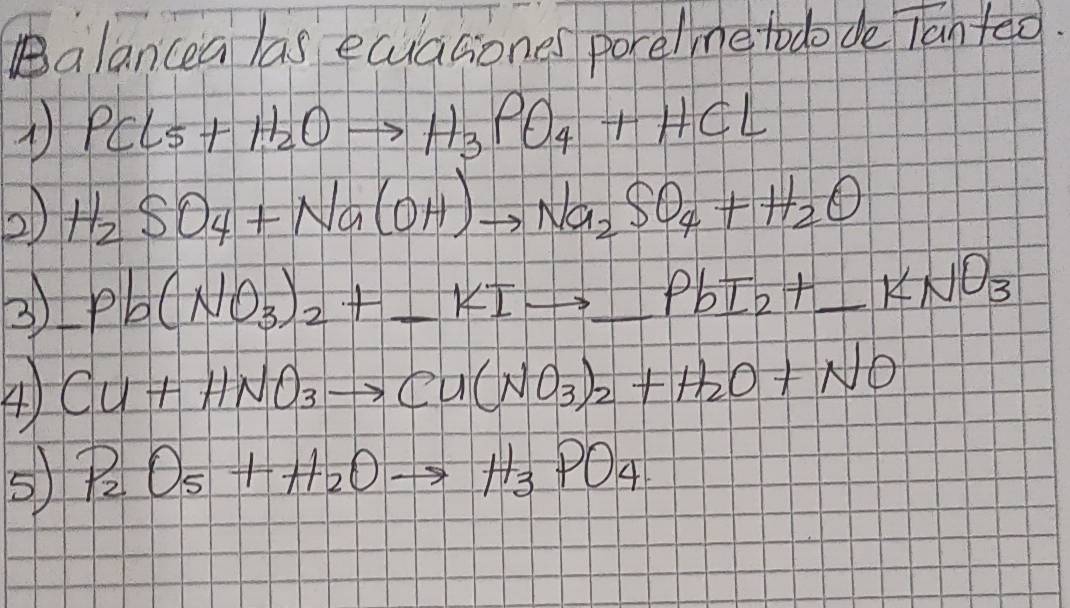 Balancea las ecuaciones por el metodo de Tanteo.
1) PCl₅ + H₂O → H₃PO₄ + HCL
2) H₂SO₄ + Na(OH) → Na₂SO₄ + H₂O
3) _Pb(NO₃)₂ + _ KI → _ PbI₂ + _ KNO₃
4) Cu + HNO₃ → Cu(NO₃)₂ + H₂O + NO
5) P₂O₅ + H₂O → H₃PO₄